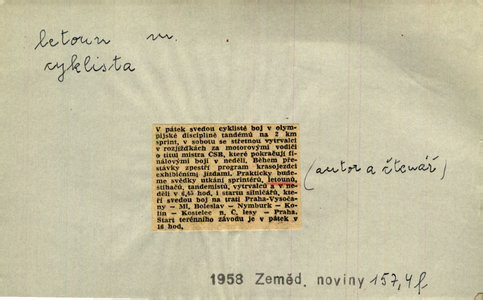 letoun m.
cyklista
V pátek svedou cyklisté boj v olym-
pijské disciplině tandémů na 2 km
sprint, v sobotu se střetnou vytrvalci
v rozjížďkách za motorovými vodiči
o titul mistra ČSR, který pokračují fi-
nálovými boji v neděli. Během pře-
stávky zpestří program krasojezdci
exhibičními jízdami. Prakticky bude-
me svědky utkání sprintérů, letounů,
stíhačů, tandemistů, vytrvalců a v ne-
děli v 6,45 hod. i startu silničářů, kte-
ří svedou boj na trati Praha-Vysoča-
ny — Ml. Boleslav — Nymburk — Ko-
lín — Kostelec n. Č. lesy — Praha.
Start terénního závodu je v pátek v
16 hod.
(autor a čtenář)
1958 Zeměd. noviny 157, 4 f